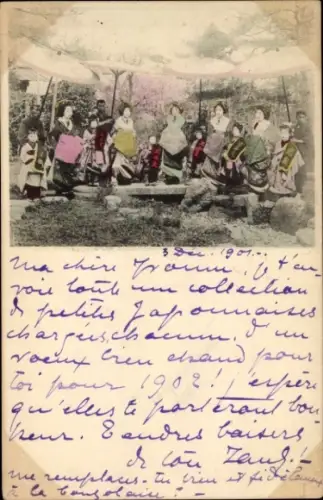 3 Déc. 1901.
Ma chère Yvonne, j t'en-
voie toute une collection
de petites Japonnaises
chargées, chacune, d'un
voeux bien chaud pour
toi pour 1902! j'espère
qu'elles te porteront bon-
heur. Tendres baisers
de ton
me remplaces-tu bien et
à la